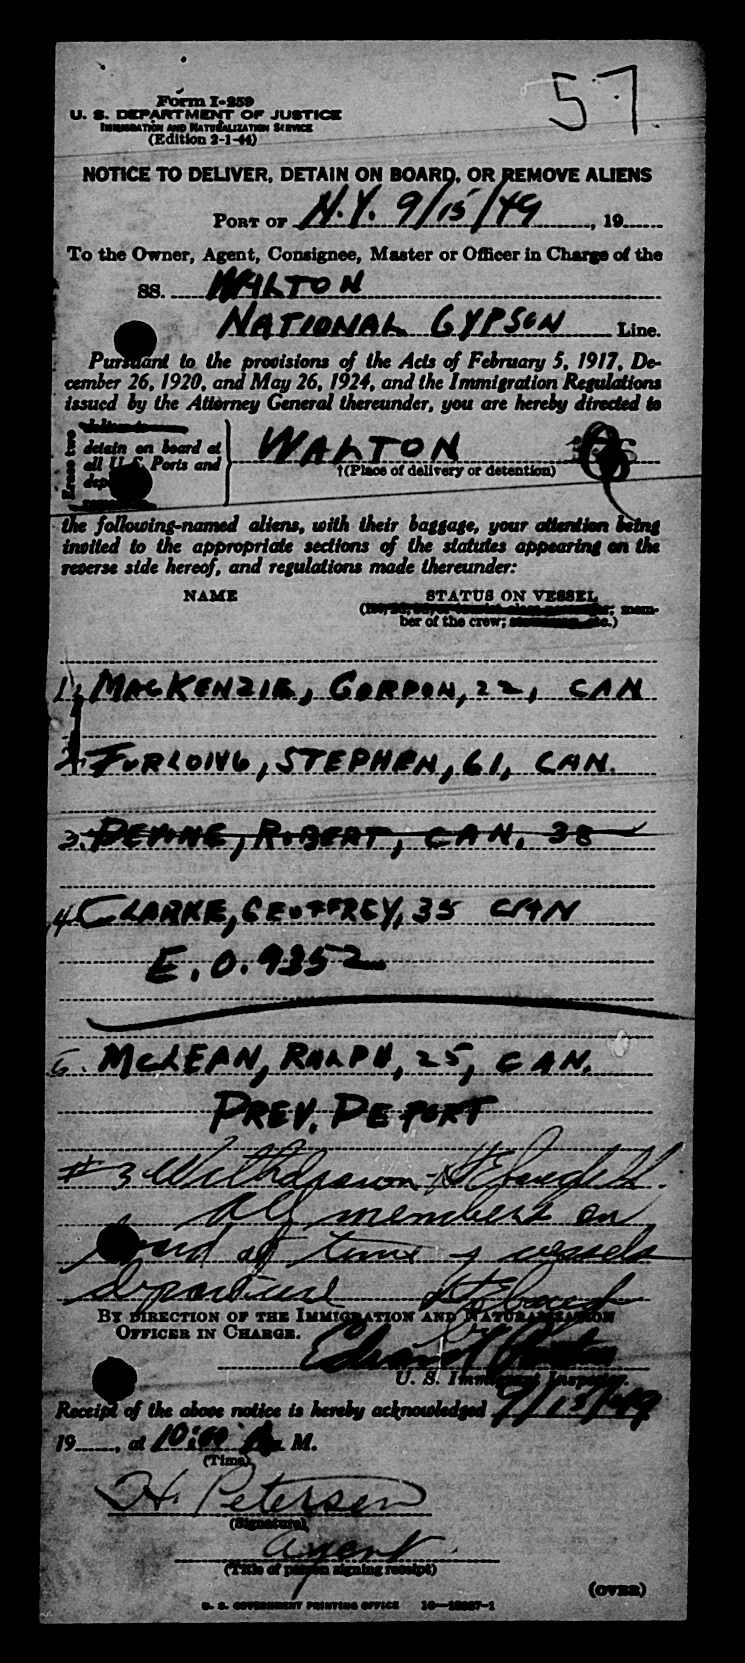 57
Form I-259
U. S. DEPARTMENT OF JUSTICE
IMMIGRATION AND NATURALIZATION SERVICE
(Edition 2-1-44)
NOTICE TO DELIVER, DETAIN ON BOARD, OR REMOVE ALIENS
PORT OF N.Y. 9/15/49, 19
To the Owner, Agent, Consignee, Master or Officer in Charge of the
SS. WALTON
NATIONAL GYPSON Line.
Pursuant to the provisions of the Acts of February 5, 1917, De-
cember 26, 1920, and May 26, 1924, and the Immigration Regulations
issued by the Attorney General thereunder, you are hereby directed to
Erase two
detain on board at
all U. S. Ports and
WALTON
†(Place of delivery or detention)
the following-named aliens, with their baggage, your attention being
invited to the appropriate sections of the statutes appearing on the
reverse side hereof, and regulations made thereunder:
NAME STATUS ON VESSEL
mem-
ber of the crew; etc.)
1. MACKENZIE, GORDON, 22, CAN
2. FURLONG, STEPHEN, 61, CAN.
3. DEVINE, ROBERT, CAN. 38
4. CLARKE, GEOFFREY, 35 CAN
E.O. 9352
5. MCLEAN, RALPH, 25, CAN.
PREV. DEPORT
#3 Withdrawn
All members on
board at time of vessels
departure
BY DIRECTION OF THE IMMIGRATION AND NATURALIZATION
OFFICER IN CHARGE.
Edward
U. S. Immigrant Inspector.
Receipt of the above notice is hereby acknowledged 9/15/49
19, at 10:00 A. M.
(Time)
H. Petersen
(Signature)
Agent
(Title of person signing receipt)
(OVER)
U. S. GOVERNMENT PRINTING OFFICE